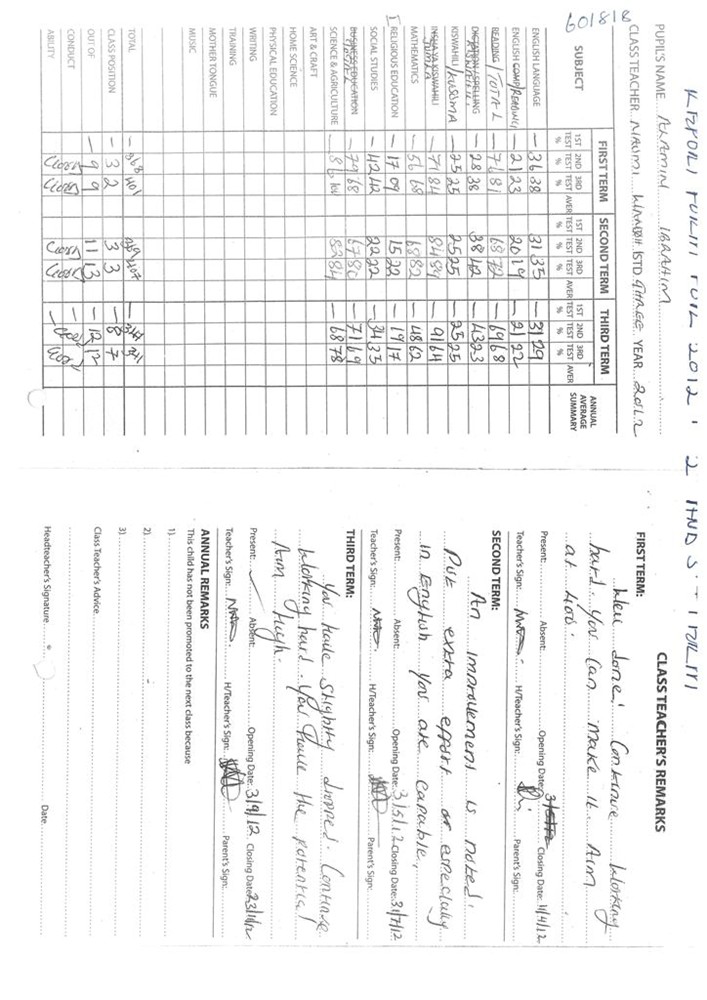 2012
601818
PUPIL'S NAME IBRAHIM
CLASS TEACHER NAUMI STD THREE YEAR 2012
SUBJECT FIRST TERM SECOND TERM THIRD TERM ANNUAL AVERAGE SUMMARY
1ST TEST % 2ND TEST % 3RD TEST % AVER 1ST TEST % 2ND TEST % 3RD TEST % AVER 1ST TEST % 2ND TEST % 3RD TEST % AVER
ENGLISH LANGUAGE — 36 38 31 35 — 31 29
ENGLISH COMP/READING — 21 23 20 19 — 21 22
READING/TOTAL — 76 81 68 72 — 69 68
DICTATION/SPELLING — 28 38 38 42 — 43 23
KISWAHILI/KUSOMA — 25 25 25 25 — 25 25
INSHA YA KISWAHILI JUMLA — 71 84 84 89 — 91 64
MATHEMATICS — 56 68 68 82 — 48 62
RELIGIOUS EDUCATION — 17 09 15 22 — 19 17
SOCIAL STUDIES — 42 42 22 22 — 34 35
BUSINESS EDUCATION — 79 68 67 80 — 71 69
SCIENCE & AGRICULTURE — 86 83 84 — 68 78
ART & CRAFT
HOME SCIENCE
PHYSICAL EDUCATION
WRITING
TRAINING
MOTHER TONGUE
MUSIC
TOTAL — 368 401 407 —
CLASS POSITION — 3 2 3 3 — 8 7
OUT OF — 9 9 11 13 — 12 12
CONDUCT Good Good Good Good — Good
ABILITY
CLASS TEACHER'S REMARKS
FIRST TERM:
Well done! Continue working
hard. You can make it. Aim
at 400.
Present: Absent: Opening Date: Closing Date: 11/4/12
Teacher's Sign: H/Teacher's Sign: Parent's Sign:
SECOND TERM:
An improvement is noted.
Put extra effort especially
in English you are capable.
Present: Absent: Opening Date: 3/5/12 Closing Date: 31/7/12
Teacher's Sign: H/Teacher's Sign: Parent's Sign:
THIRD TERM:
You have slightly dropped. Continue
working hard. You have the potential
Aim high.
Present: Absent: Opening Date: 3/9/12 Closing Date: 23/11/12
Teacher's Sign: H/Teacher's Sign: Parent's Sign:
ANNUAL REMARKS
This child has not been promoted to the next class because
1)
2)
3)
Class Teacher's Advice
Headteacher's Signature Date